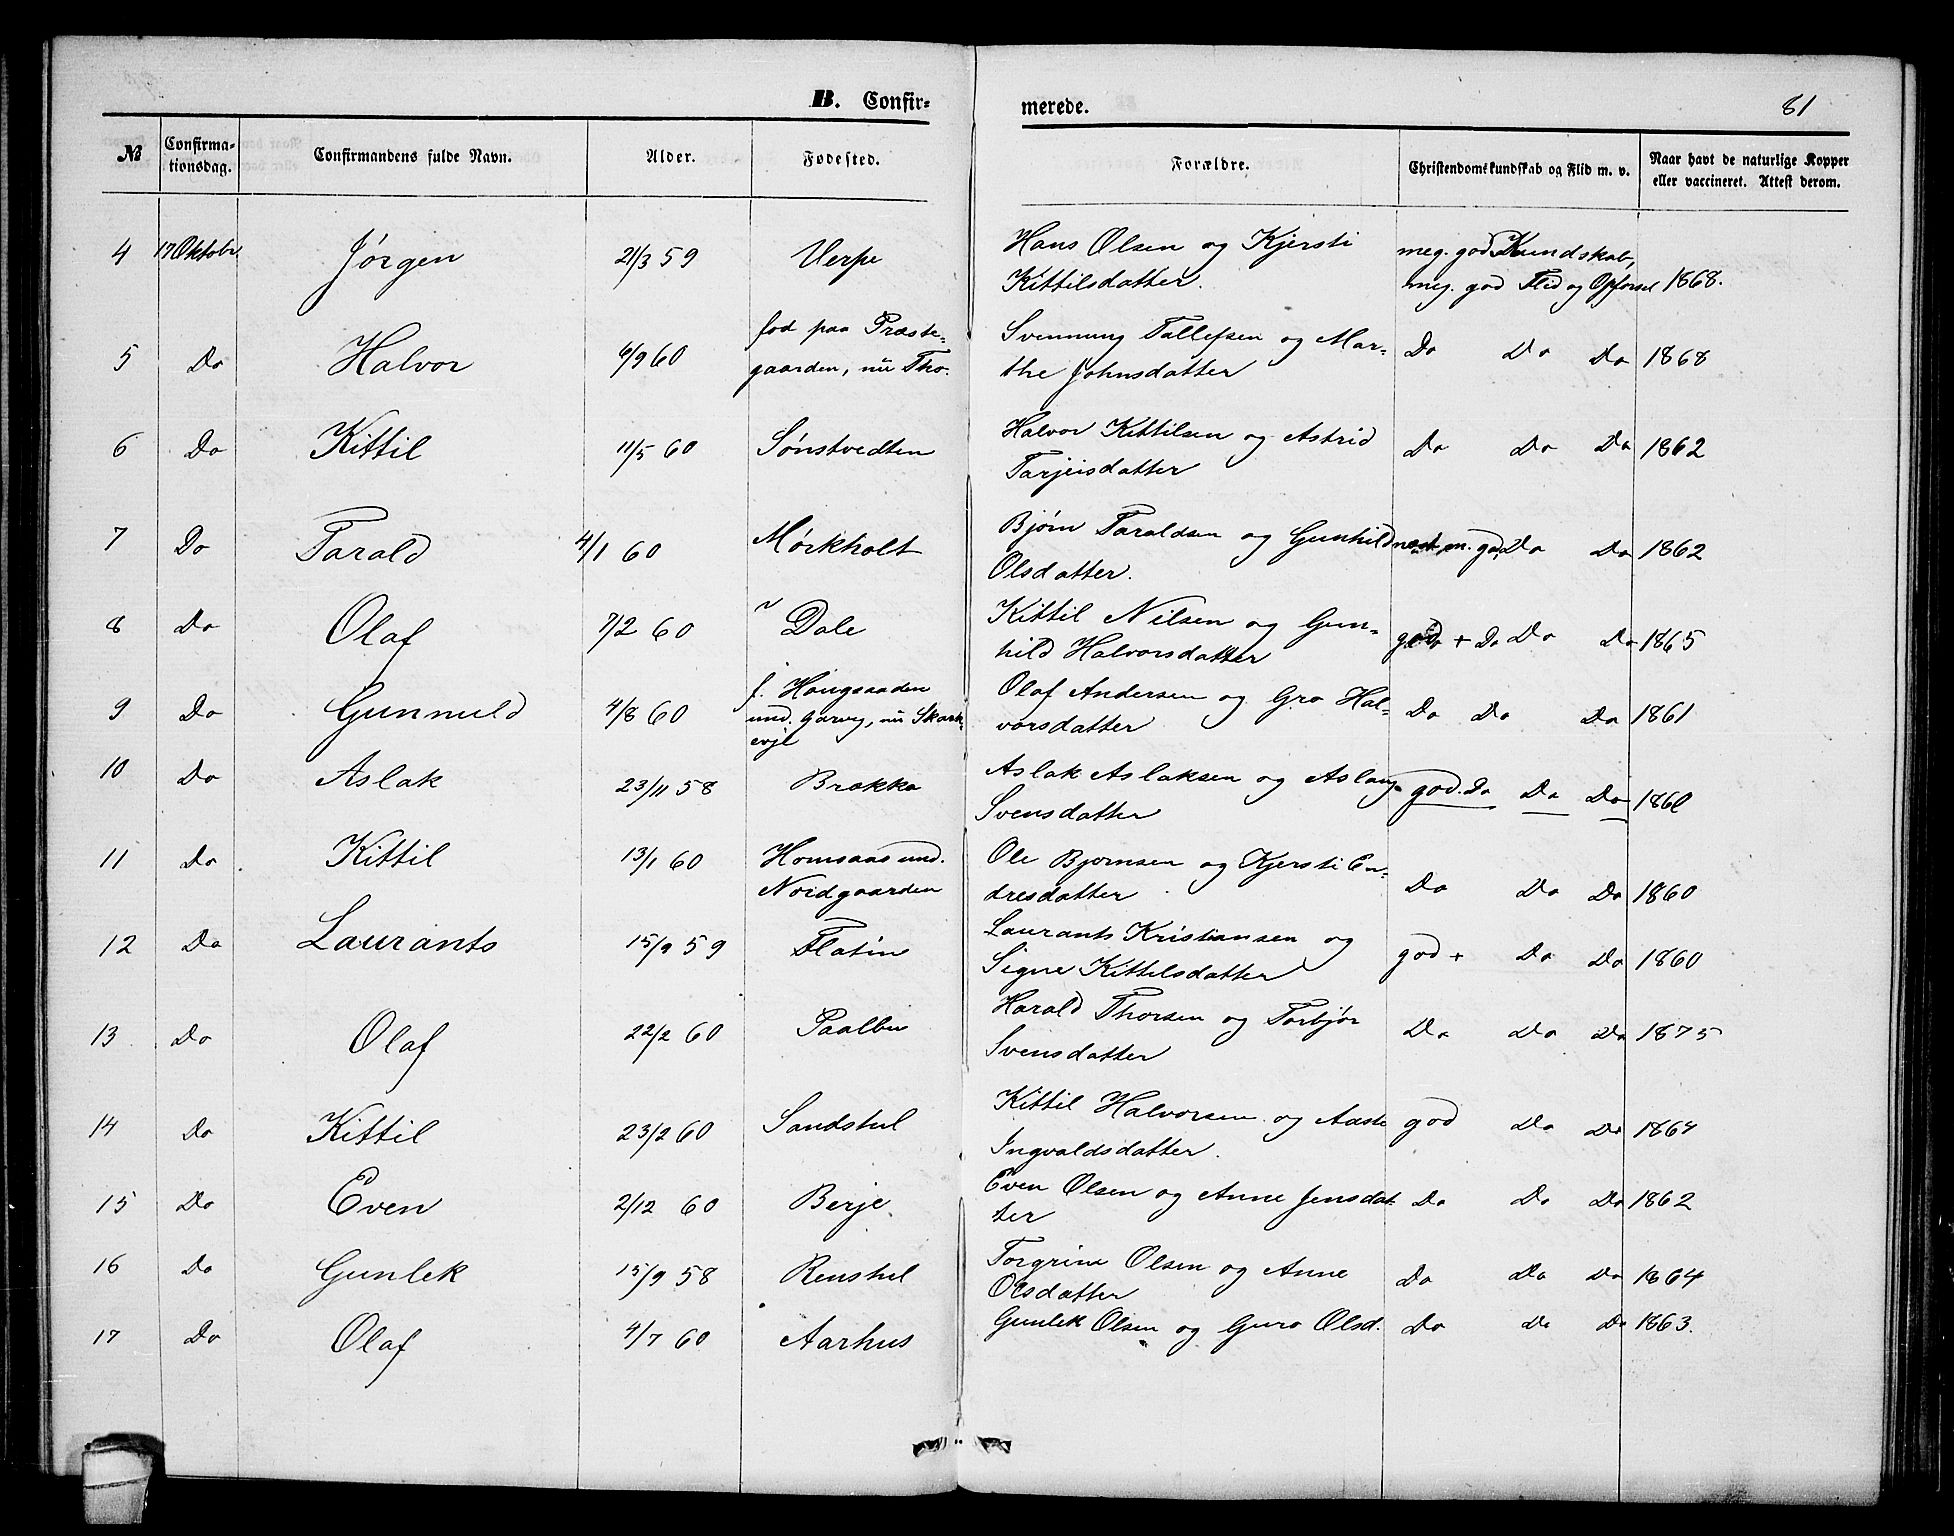 B. Confirmerede. 81
№ Confirmationsdag. Confirmandens fulde Navn. Alder. Fødested. Forældre. Christendomskundskab og Flid m. v. Naar havt de naturlige Kopper eller vaccineret. Attest derom.
4 17 Oktobr Jørgen 21/3 59 Verpe Hans Olsen og Kjersti meg. god Kundskab,
Kittilsdatter. meg. god Flid og Opførsel 1868.
5 Do Halvor 6/9 60 fød paa Præste- Svennung Tallefsen og Mar- Do Do Do 1868
gaarden, nu Tho. the Johnsdatter
6 Do Kittil 11/5 60 Sønstvedten Halvor Kittilsen og Astrid Do Do Do 1862
Tarjeisdatter
7 Do Tarald 4/1 60 Mørkholt Bjørn Taraldsen og Gunhild næst m. god Do Do 1862
Olsdatter.
8 Do Olaf 7/2 60 Dale Kittil Nilsen og Gun- god + Do Do Do 1865
hild Halvorsdatter
9 Do Gunnuld 4/8 60 f. Haugaaden Olaf Andersen og Gro Hal- Do Do Do 1861
und. Garvig, nu Skark- vorsdatter
evje
10 Do Aslak 23/11 58 Brækka Aslak Aslaksen og Aslaug god. Do Do Do 1860
Svensdatter
11 Do Kittil 13/1 60 Homsaas und. Ole Bjørnsen og Kjersti En- Do Do Do 1860
Nordgaarden dresdatter
12 Do Laurants 15/9 59 Flatin Laurants Kristiansen og god + Do Do 1860
Signe Kittilsdatter
13 Do Olaf 22/2 60 Paalbu Harald Thorsen og Torbjør Do Do Do 1875
Svensdatter
14 Do Kittil 23/2 60 Sandshul Kittil Halvorsen og Aaste god Do Do 1864
Ingvaldsdatter.
15 Do Even 2/12 60 Berje. Even Olsen og Anne Jensdat- Do Do Do 1862
ter
16 Do Gunlek 15/9 58 Renshul Torgrim Olsen og Anne Do Do Do 1864
Olsdatter
17 Do Olaf 4/7 60 Aarhus Gunlek Olsen og Guro Olsd. Do Do Do 1863.